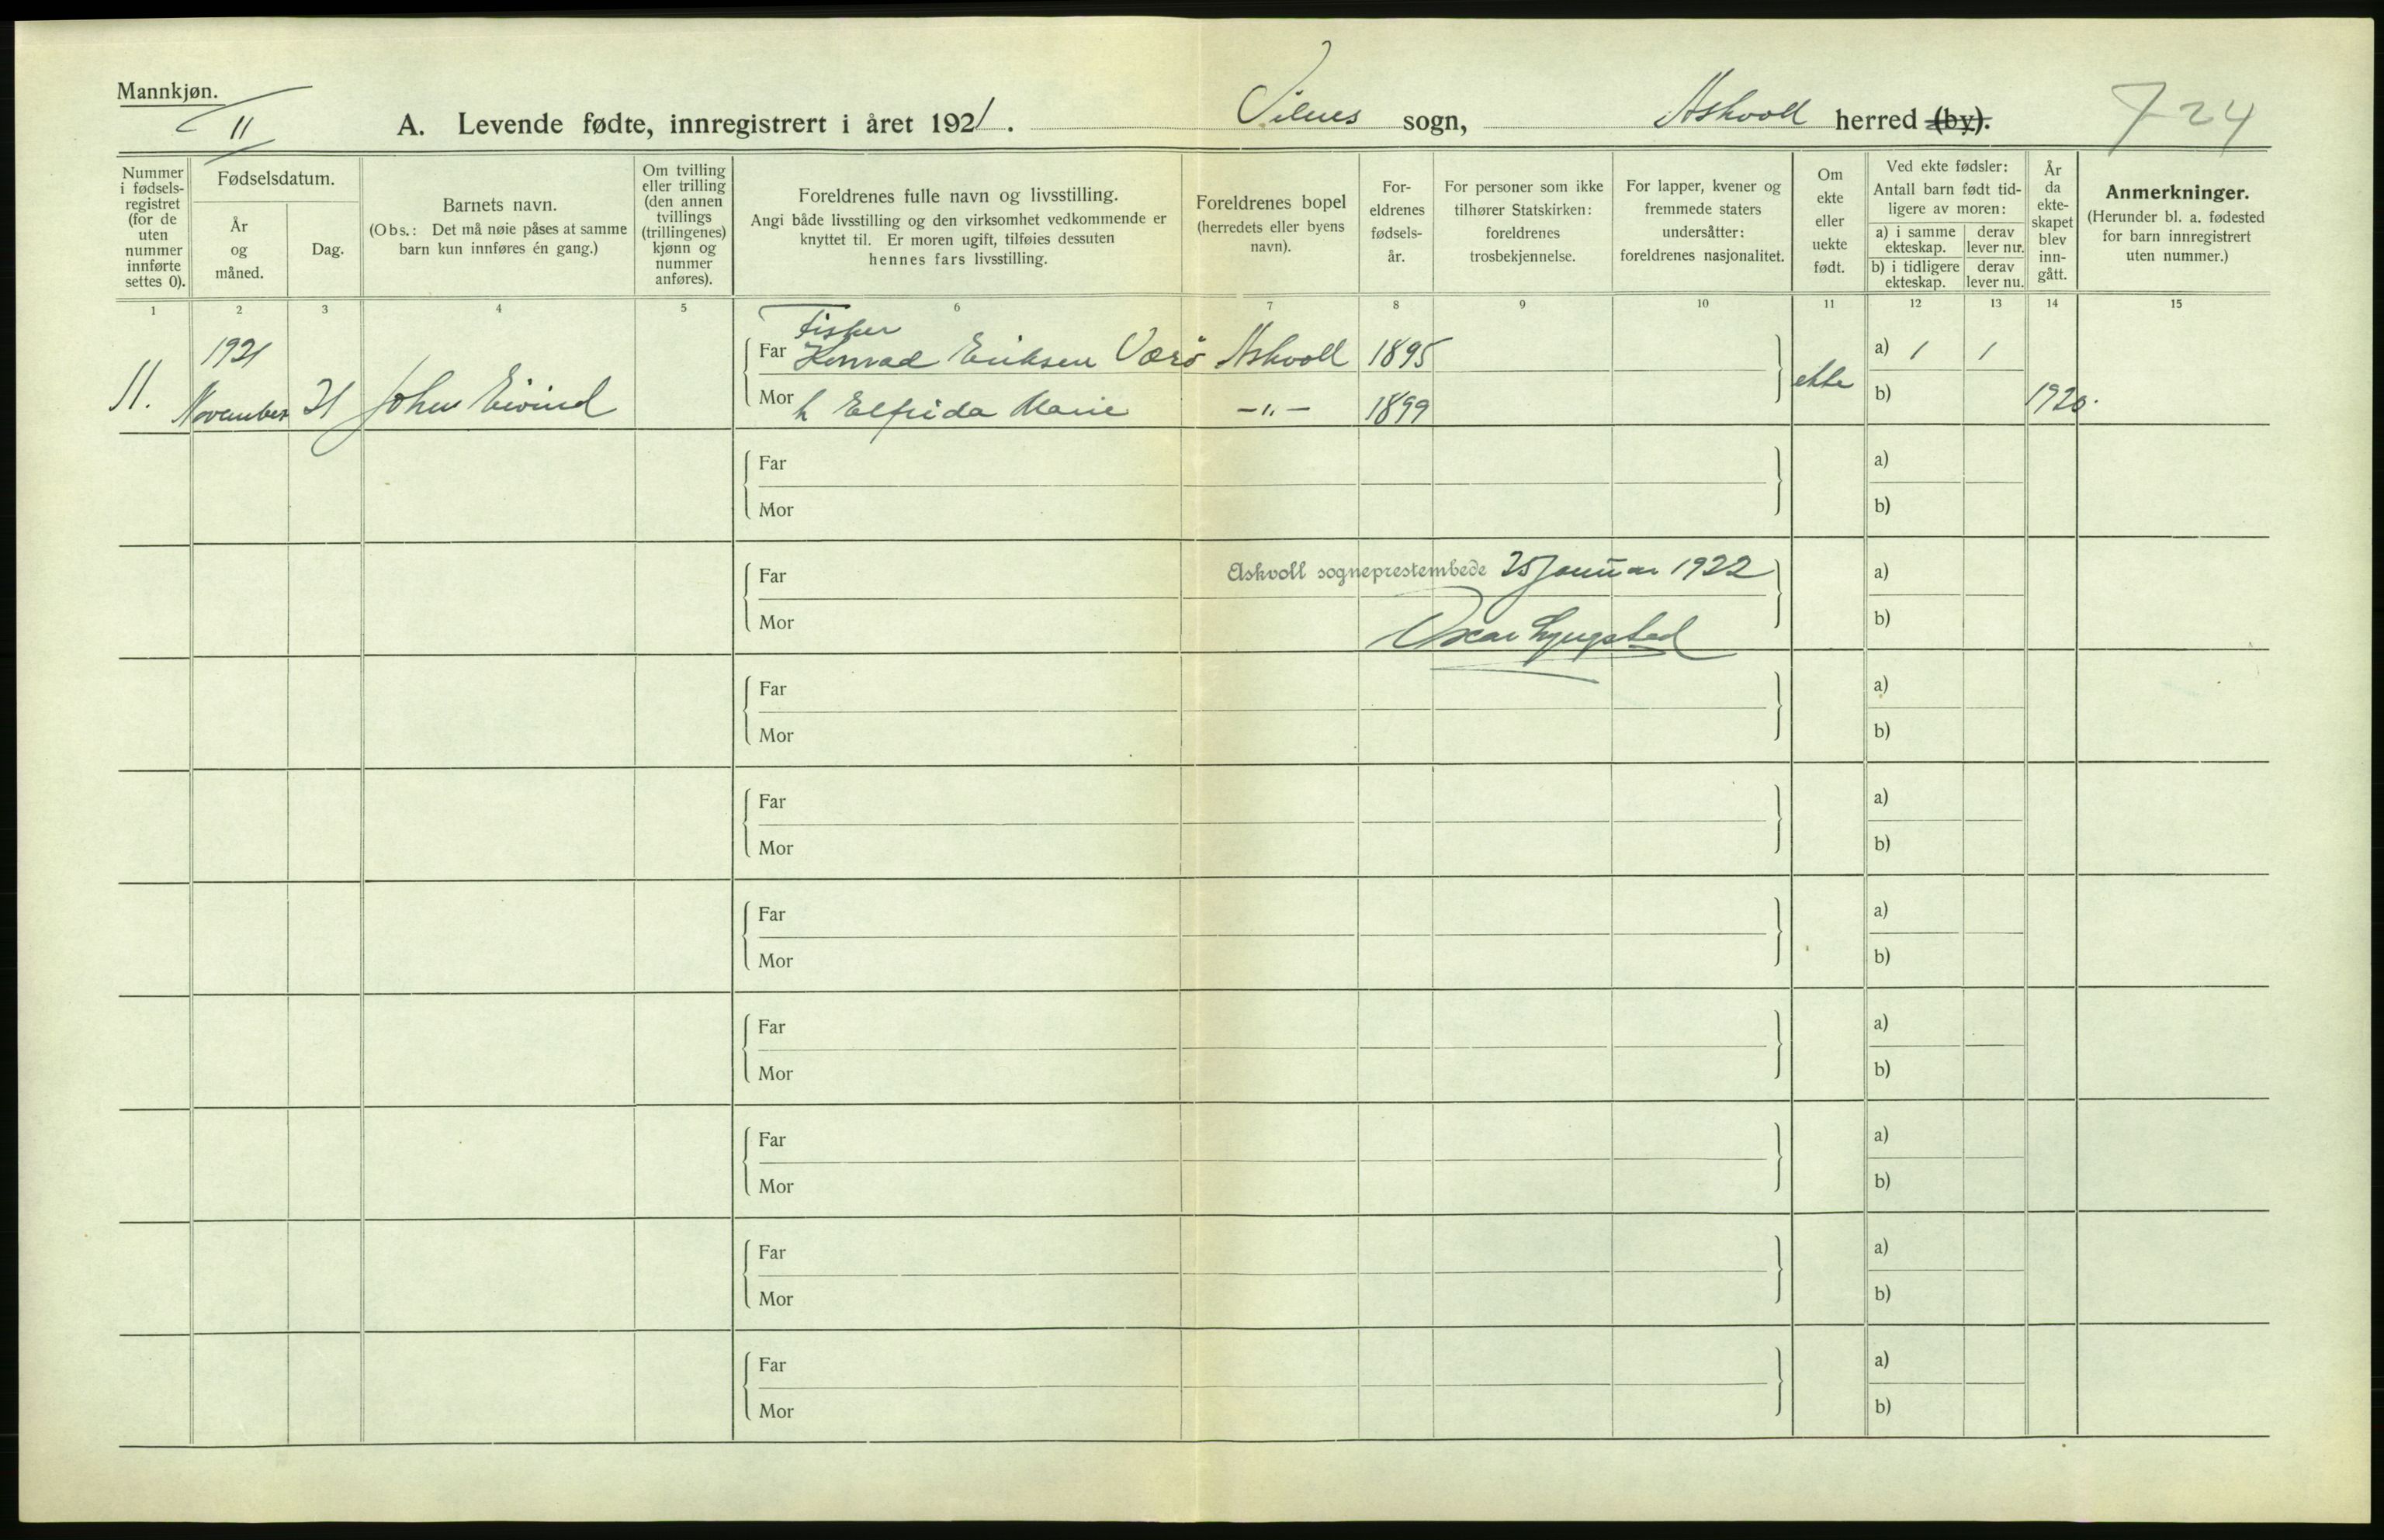 Mannkjøn.
11
A. Levende fødte, innregistrert i året 1921. Vilnes sogn, Askvoll herred (by). 724
Nummer i fødsels-registret (for de uten nummer innførte settes 0).
Fødselsdatum.
År og måned.
Dag.
Barnets navn.
(Obs.: Det må nøie påses at samme barn kun innføres én gang.)
Om tvilling eller trilling (den annen tvillings (trillingenes) kjønn og nummer anføres).
Foreldrenes fulle navn og livsstilling.
Angi både livsstilling og den virksomhet vedkommende er knyttet til. Er moren ugift, tilføies dessuten hennes fars livsstilling.
Foreldrenes bopel
(herredets eller byens navn).
For-eldrenes fødsels-år.
For personer som ikke tilhører Statskirken: foreldrenes trosbekjennelse.
For lapper, kvener og fremmede staters undersåtter: foreldrenes nasjonalitet.
Om ekte eller uekte født.
Ved ekte fødsler:
Antall barn født tid-ligere av moren:
a) i samme ekteskap.
derav lever nu.
b) i tidligere ekteskap.
derav lever nu.
År da ekte-skapet blev inn-gått.
Anmerkninger.
(Herunder bl. a. fødested for barn innregistrert uten nummer.)
1 2 3 4 5 6 7 8 9 10 11 12 13 14 15
Fisker
1921 Far Konrad Eriksen Værö Askvoll 1895 a) 1 1
11. November 21 John Eivind ekte
Mor h Elfrida Marie -"- 1899 b) 1920.
Far a)
Mor b)
Far Askvoll sogneprestembede 25 Januar 1922 a)
Mor Oscar Lyngstad b)
Far a)
Mor b)
Far a)
Mor b)
Far a)
Mor b)
Far a)
Mor b)
Far a)
Mor b)
Far a)
Mor b)
Far a)
Mor b)